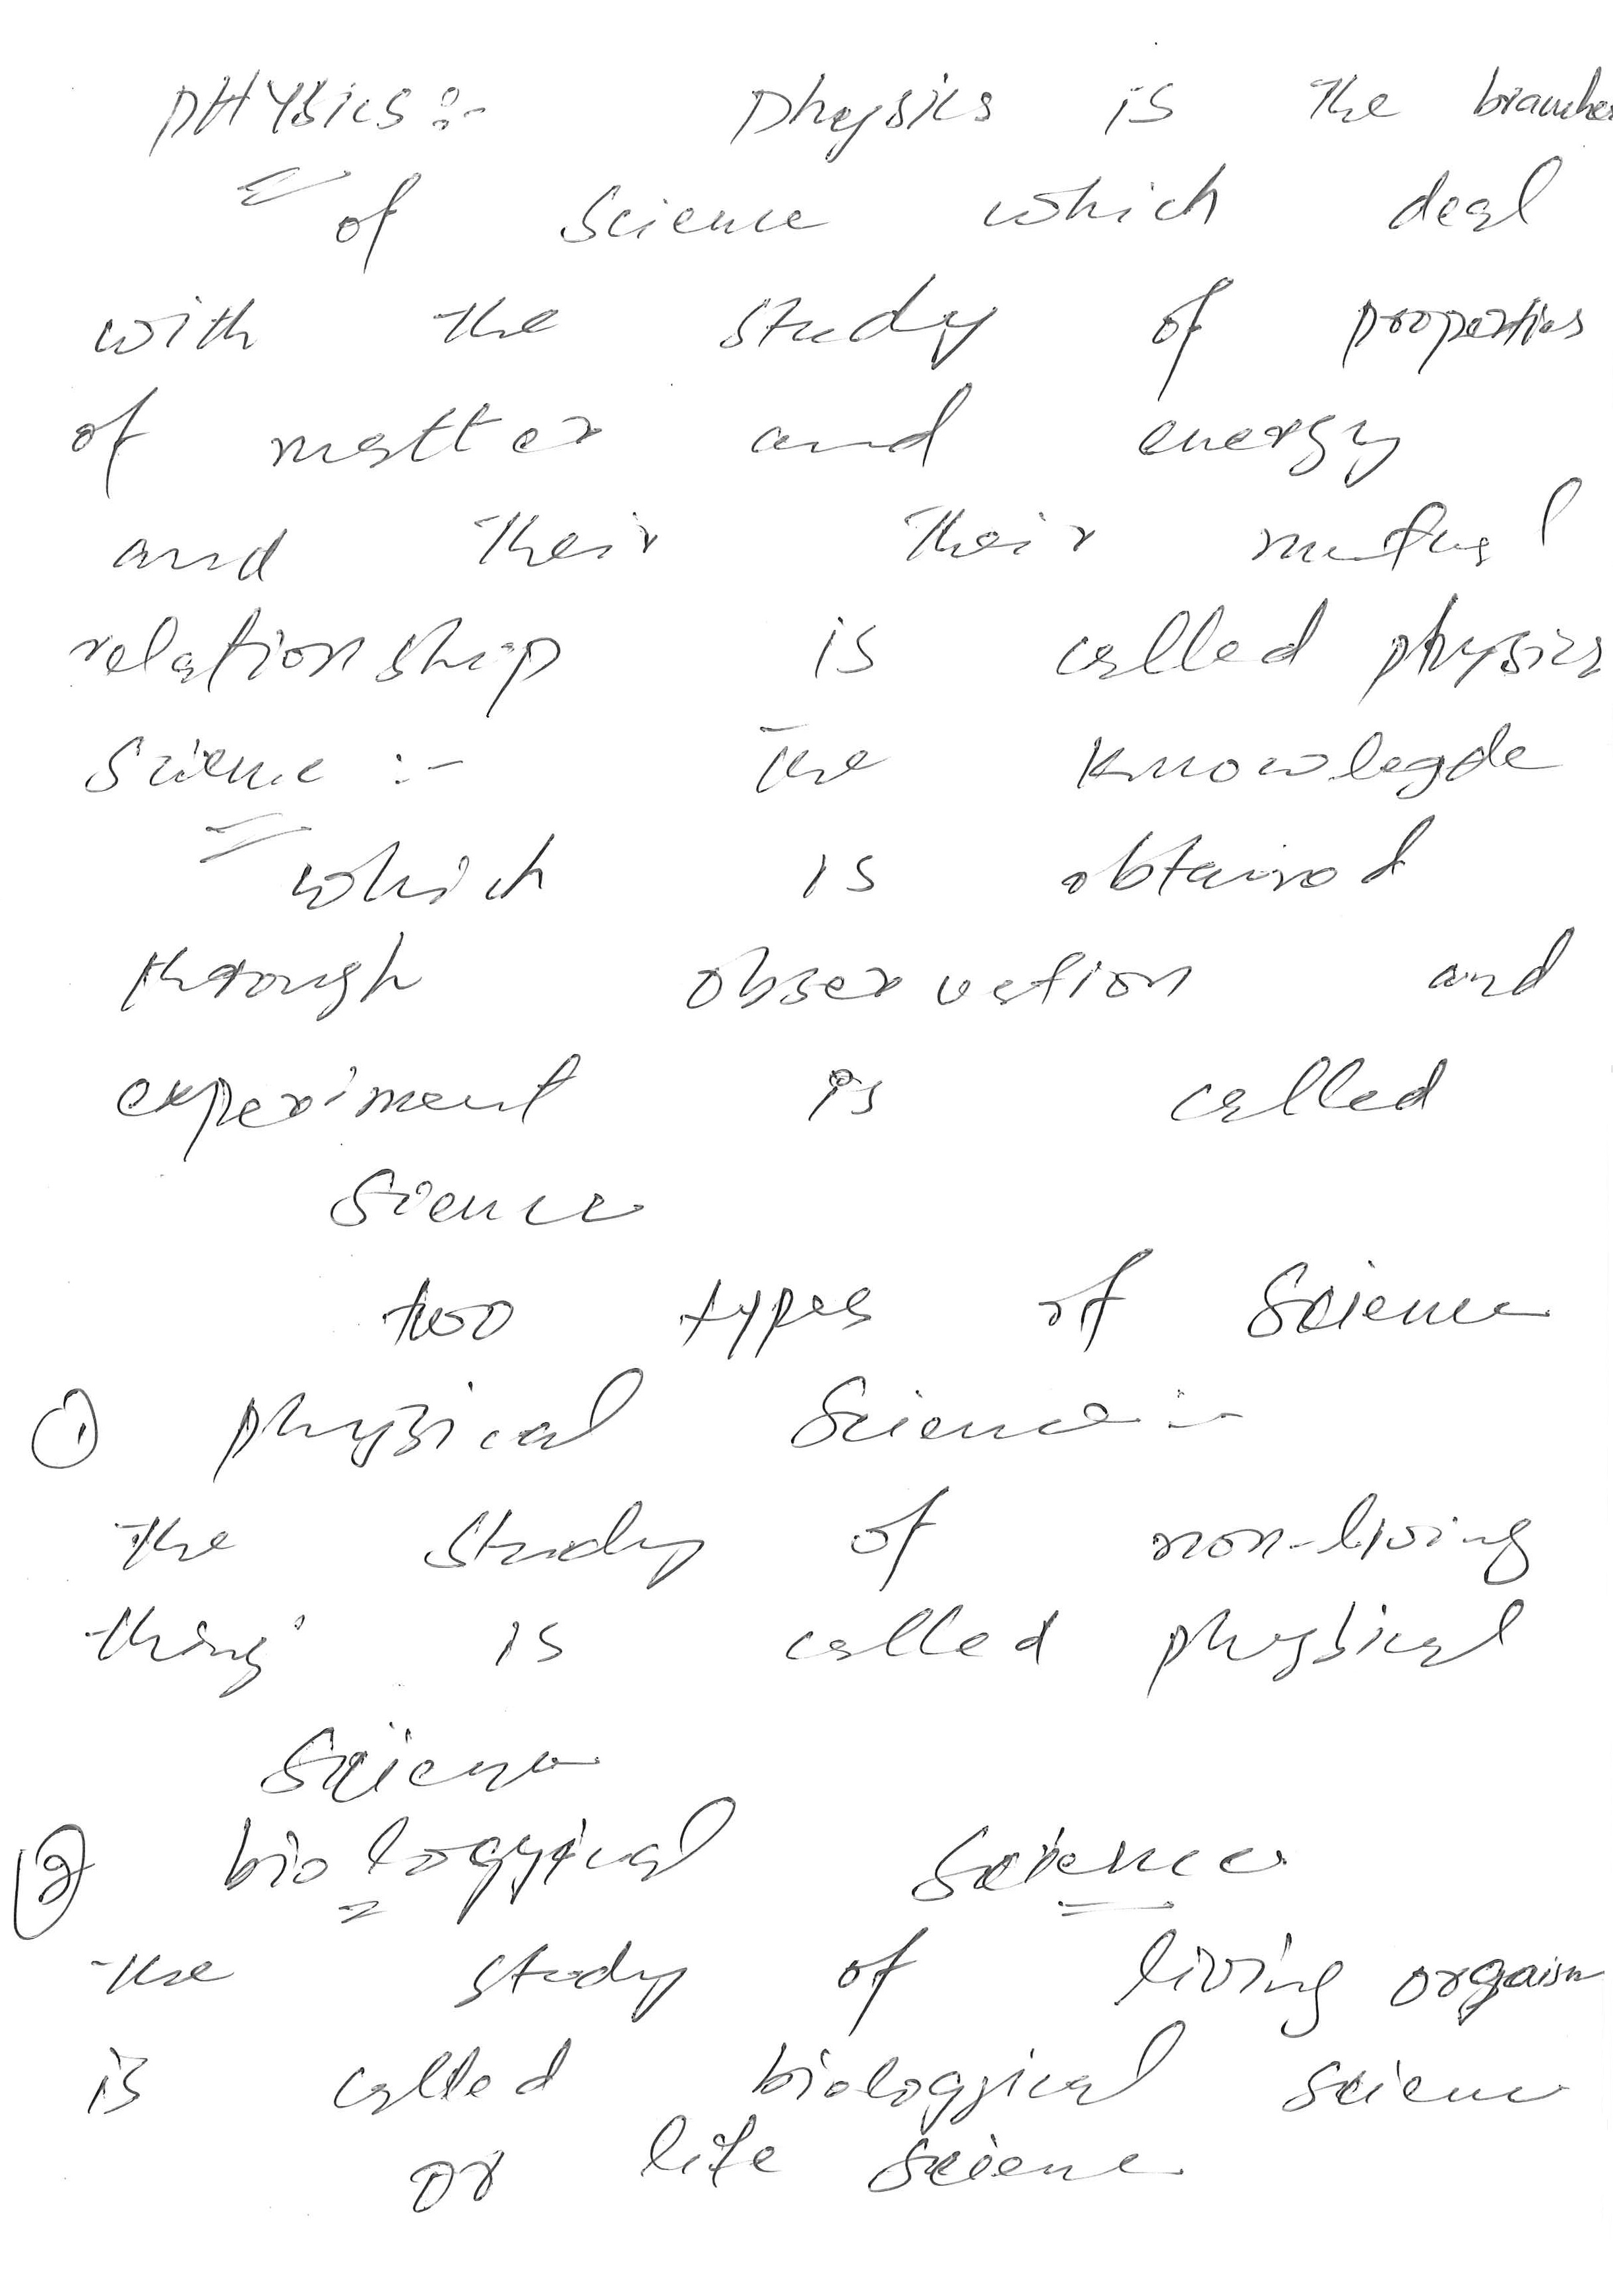 PHYSICS:- Physics is the branches
of Science which deal
with the study of properties
of matter and energy
and their their mutual
relationship is called physics
Science :- The Knowlegde
which is obtained
through observation and
experiment is called
Science
two types of Science
① physical Science:-
The study of non-living
thing is called physical
Science
② biologyical Science
The study of living orgaism
is called biologyical Science
or life Science